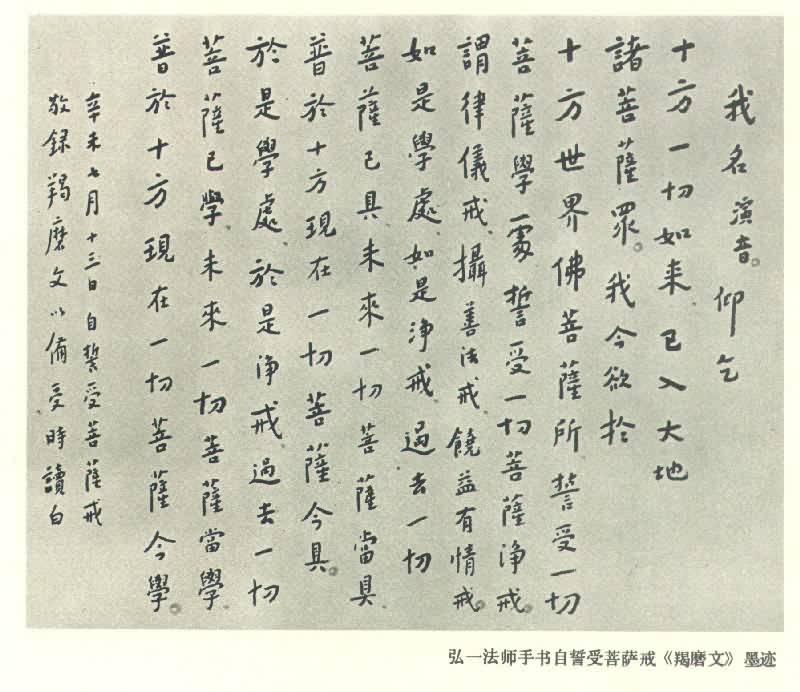 我名演音。仰乞
十方一切如来已入大地
諸菩薩眾。我今欲於
十方世界佛菩薩所誓受一切
菩薩學處誓受一切菩薩淨戒。
謂律儀戒攝善法戒饒益有情戒。
如是學處如是淨戒過去一切
菩薩已具未來一切菩薩當具
普於十方現在一切菩薩今具。
於是學處於是淨戒過去一切
菩薩已學未來一切菩薩當學
普於十方現在一切菩薩今學。
辛未七月十三日自誓受菩薩戒
敬録羯磨文以備受時讀白
弘一法师手书自誓受菩萨戒《羯磨文》墨迹